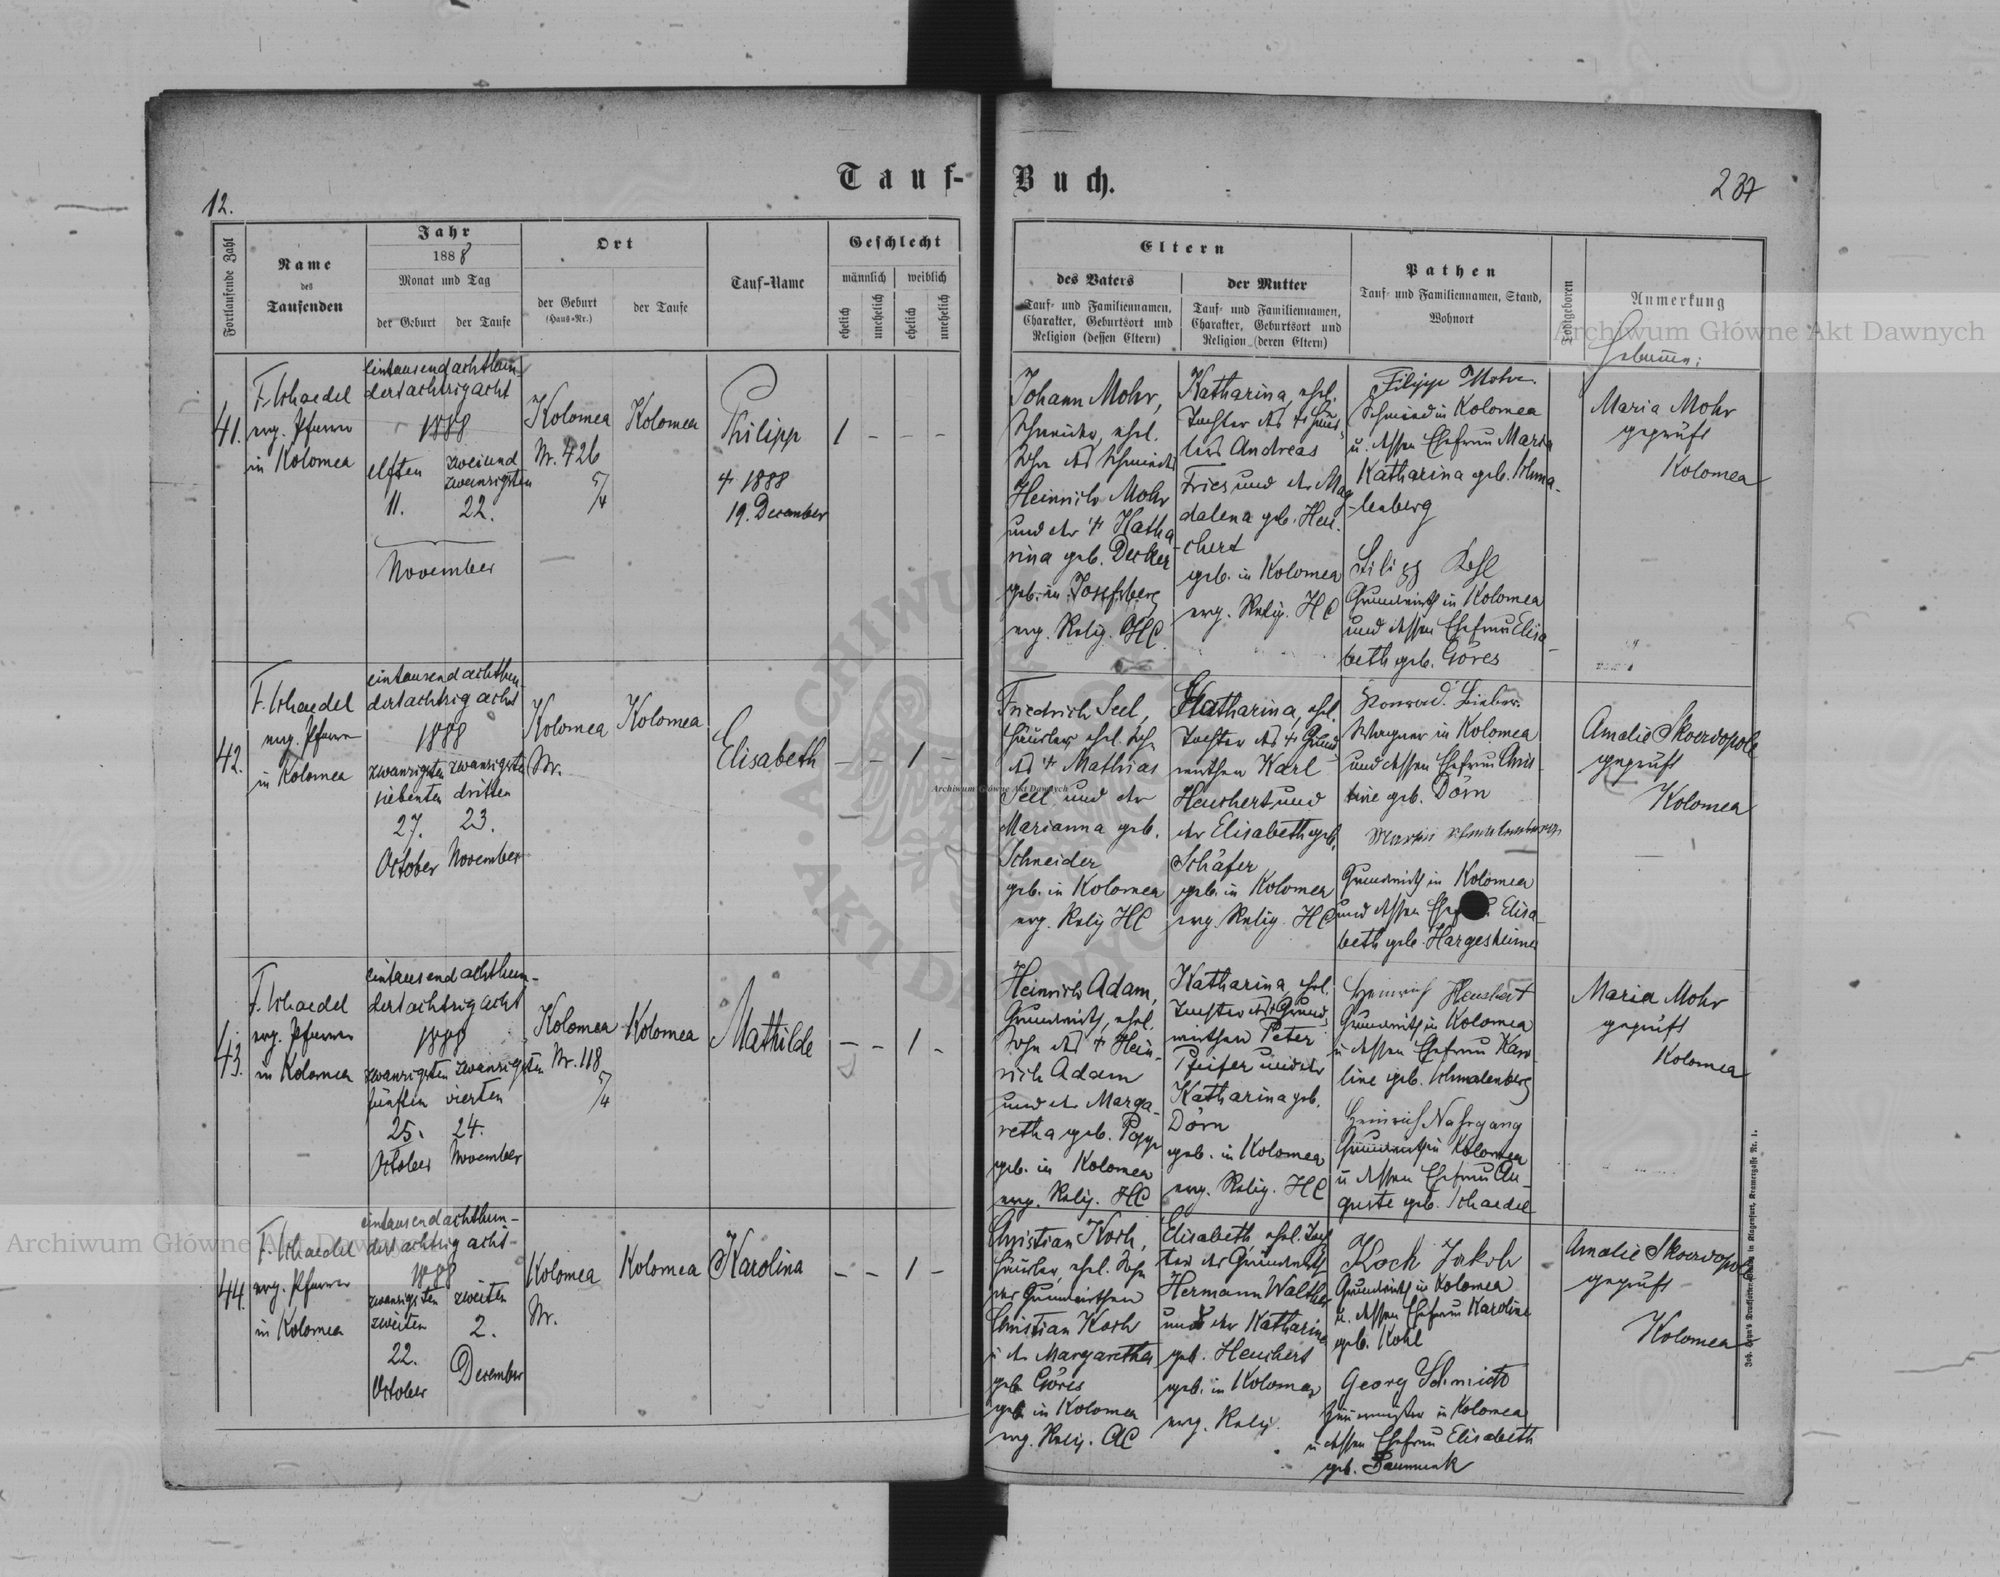 Tauf-Buch.
12.
237
Fortlaufende Zahl
Name
des
Taufenden
Jahr
1888
Monat und Tag
der Geburt
der Taufe
Ort
der Geburt
(Haus-Nr.)
der Taufe
Tauf-Name
Geschlecht
männlich
weiblich
ehelich
unehelich
ehelich
unehelich
Eltern
des Vaters
Tauf- und Familiennamen,
Charakter, Geburtsort und
Religion (dessen Eltern)
der Mutter
Tauf- und Familiennamen,
Charakter, Geburtsort und
Religion (deren Eltern)
Pathen
Tauf- und Familiennamen, Stand,
Wohnort
Todtgeboren
Anmerkung
Hebamme:
41.
F. Schaedel
evg. Pfarrer
in Kolomea
eintausendachthun-
dertachtzigacht
1888
elften
11.
zweiund
zwanzigsten
22.
November
Kolomea
Nr. 426
5/4
Kolomea
Philipp
† 1888
19. December
1 - - -
Johann Mohr,
Schneider, ehel.
Sohn des Schmiedes
Heinrich Mohr
und der † Katha
rina geb. Decker
geb. in Josefsberg
evg. Relig. HC.
Katharina, ehel.
Tochter des † Häus-
lers Andreas
Fries und der Mag
dalena geb. Heu-
chert
geb. in Kolomea
evg. Relig. HC
Filipp Mohr.
Schmied in Kolomea
u. dessen Ehefrau Maria
Katharina geb. Schma-
lenberg
Filipp Kohl
Grundwirth in Kolomea
und dessen Ehefrau Elisa-
beth geb. Göres
Maria Mohr
geprüft
Kolomea
42.
F. Schaedel
evg. Pfarrer
in Kolomea
eintausendachthun-
dertachtzigacht
1888
zwanzigsten
siebenten
27.
October
zwanzigsten
dritten
23.
November
Kolomea
Nr.
Kolomea
Elisabeth
- - 1 -
Friedrich Seel,
Häusler, ehel. Sohn
des † Mathias
Seel und der
Marianna geb.
Schneider
geb. in Kolomea
evg. Relig HC
Katharina, ehel.
Tochter des † Grund
wirthen Karl
Heuchert und
der Elisabeth geb.
Schäfer
geb. in Kolomea
evg. Relig. HC
Konrad Bieber.
Wagner in Kolomea
und dessen Ehefrau Chris-
tine geb. Dörn
Grundwirth in Kolomea
und dessen Elisa-
beth geb. Hargesheimer
Amalie Skowdopole
geprüft
Kolomea
43.
F. Schaedel
evg. Pfarrer
in Kolomea
eintausendachthun-
dertachtzigacht
1888
zwanzigsten
fünften
25.
October
zwanzigsten
vierten
24.
November
Kolomea
Nr. 118
5/4
Kolomea
Mathilde
- - 1 -
Heinrich Adam,
Grundwirth, ehel.
Sohn des † Hein-
rich Adam
und der Marga-
retha geb. Popp
geb. in Kolomea
evg. Relig. HC
Katharina, ehel.
Tochter des † Grund-
wirthen Peter
Pfeifer und der
Katharina geb.
Dörn
geb. in Kolomea
evg. Relig. HC
Heinrich Heuchert
Grundwirth in Kolomea
u dessen Ehefrau Karo-
line geb. Schmalenberg
Heinrich Nahrgang
Grundwirth in Kolomea
u dessen Ehefrau Au-
guste geb. Schaedel
Maria Mohr
geprüft
Kolomea
44.
F. Schaedel
evg. Pfarrer
in Kolomea
eintausendachthun-
dertachtzigacht
1888
zwanzigsten
zweiten
22.
October
zweiten
2.
December
Kolomea
Nr.
Kolomea
Karolina
- - 1 -
Christian Koch,
Häusler, ehel. Sohn
des Grundwirthen
Christian Koch
u der Margaretha
geb Göres
geb in Kolomea
evg. Relig. AC
Elisabeth, ehel. Toch
ter des Grundwirth
Hermann Walther
und der Katharina
geb. Heuchert
geb. in Kolomea
evg. Relig.
Koch Jakob
Grundwirth in Kolomea
u. dessen Ehefrau Karoline
geb. Kohl
Georg Schmidt
in Kolomea
u dessen Ehefrau Elisabeth
geb.
Amalie Skowdopole
geprüft
Kolomea
Archiwum Główne Akt Dawnych
Archiwum Główne Akt Dawnych
Archiwum Główne Akt Dawnych